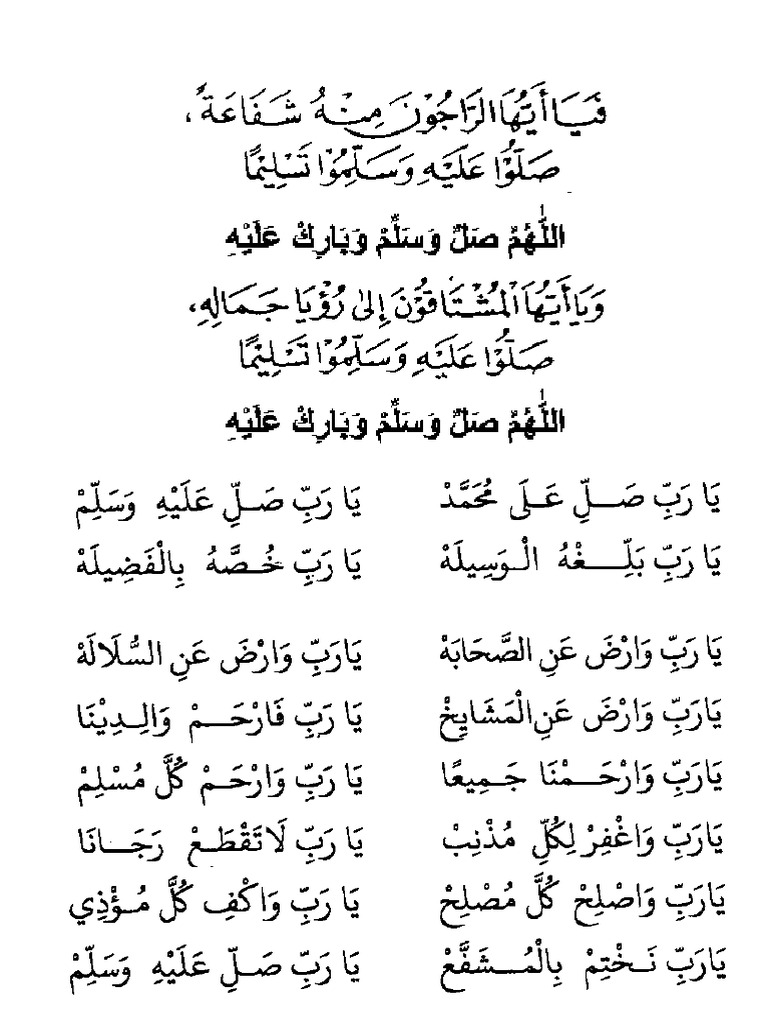 فَيَا أَيُّهَا الرَّاجُوْنَ مِنْهُ شَفَاعَةً،
صَلُّوْا عَلَيْهِ وَسَلِّمُوْا تَسْلِيْمًا
اللّٰهُمَّ صَلِّ وَسَلِّمْ وَبَارِكْ عَلَيْهِ
وَيَا أَيُّهَا الْمُشْتَاقُوْنَ إِلَى رُؤْيَا جَمَالِهِ،
صَلُّوْا عَلَيْهِ وَسَلِّمُوْا تَسْلِيْمًا
اللّٰهُمَّ صَلِّ وَسَلِّمْ وَبَارِكْ عَلَيْهِ
يَا رَبِّ صَلِّ عَلَى مُحَمَّدْ يَا رَبِّ صَلِّ عَلَيْهِ وَسَلِّمْ
يَا رَبِّ بَلِّغْهُ الْوَسِيلَهْ يَا رَبِّ خُصَّهُ بِالْفَضِيلَهْ
يَارَبِّ وَارْضَ عَنِ الصَّحَابَهْ يَارَبِّ وَارْضَ عَنِ السُّلَالَهْ
يَارَبِّ وَارْضَ عَنِ الْمَشَايِخْ يَا رَبِّ فَارْحَمْ وَالِدِيْنَا
يَارَبِّ وَارْحَمْنَا جَمِيعًا يَا رَبِّ وَارْحَمْ كُلَّ مُسْلِمْ
يَارَبِّ وَاغْفِرْ لِكُلِّ مُذْنِبْ يَا رَبِّ لَاتَقْطَعْ رَجَانَا
يَارَبِّ وَاصْلِحْ كُلَّ مُصْلِحْ يَا رَبِّ وَاكْفِ كُلَّ مُؤْذِي
يَارَبِّ نَخْتِمْ بِالْمُشَفَّعْ يَا رَبِّ صَلِّ عَلَيْهِ وَسَلِّمْ